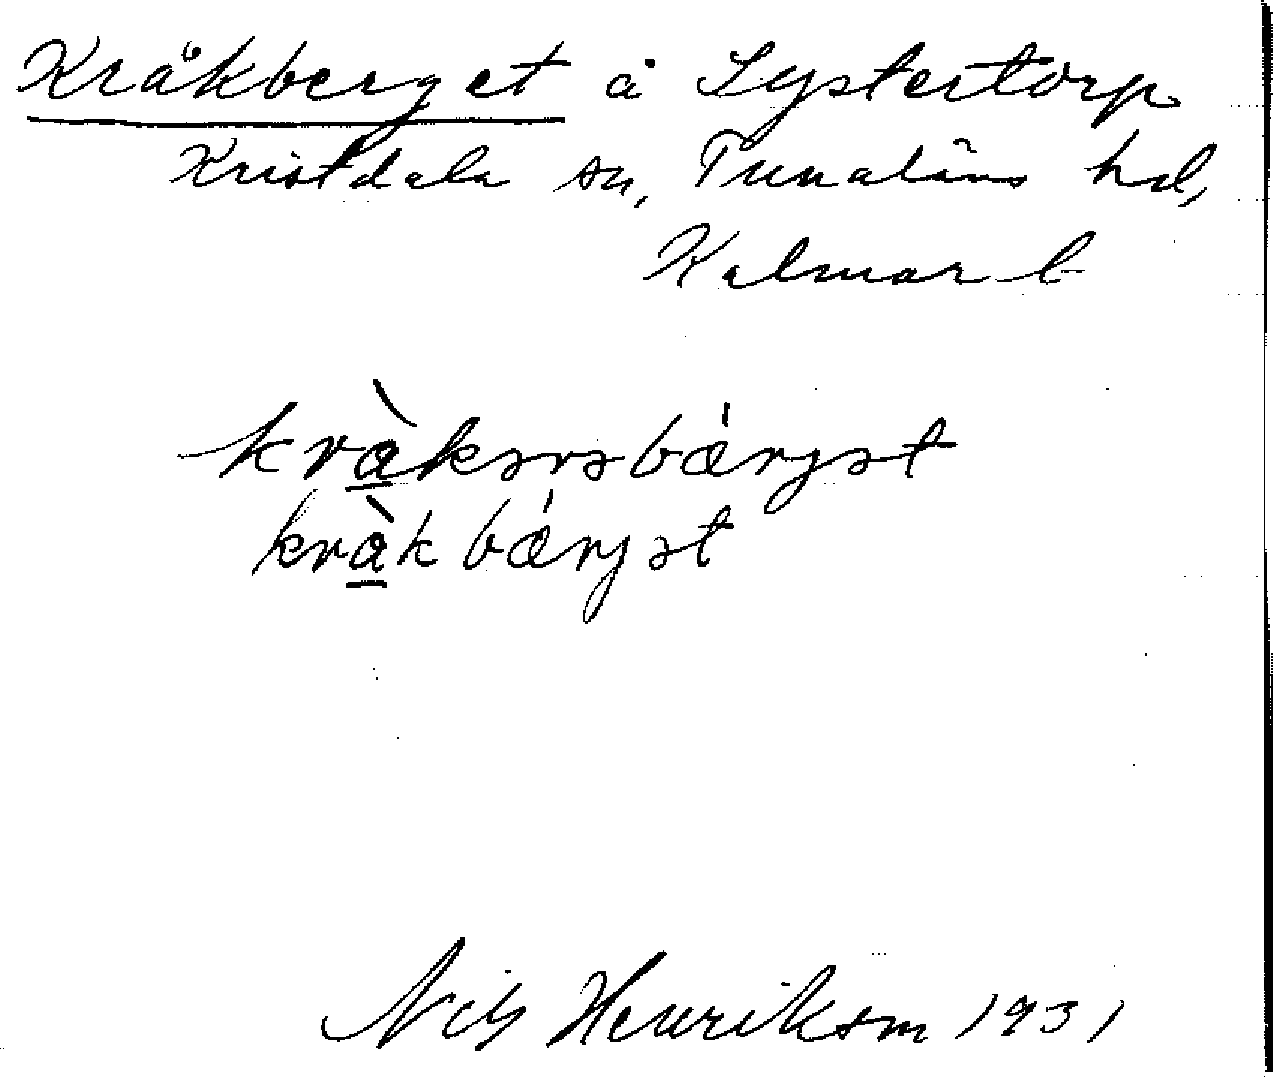 Kråkberget å Lystertorp
Kristdala sn, Tunaläns hd,
Kalmar l
krа̱̀kərsbæ̍rjət
krа̱̀kbæ̍rjət
Nils Henriksm 1931